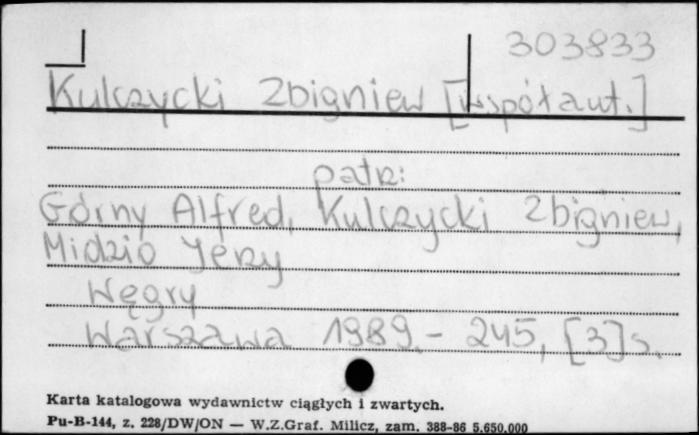 303833
Kulczycki Zbigniew [współaut.]
patrz:
Górny Alfred, Kulczycki Zbigniew,
Midzio Jerzy
Węgry
Warszawa 1989.- 245, [3] s.
Karta katalogowa wydawnictw ciągłych i zwartych.
Pu-B-144, z. 228/DW/ON — W.Z.Graf. Milicz, zam. 388-86 5.650.000